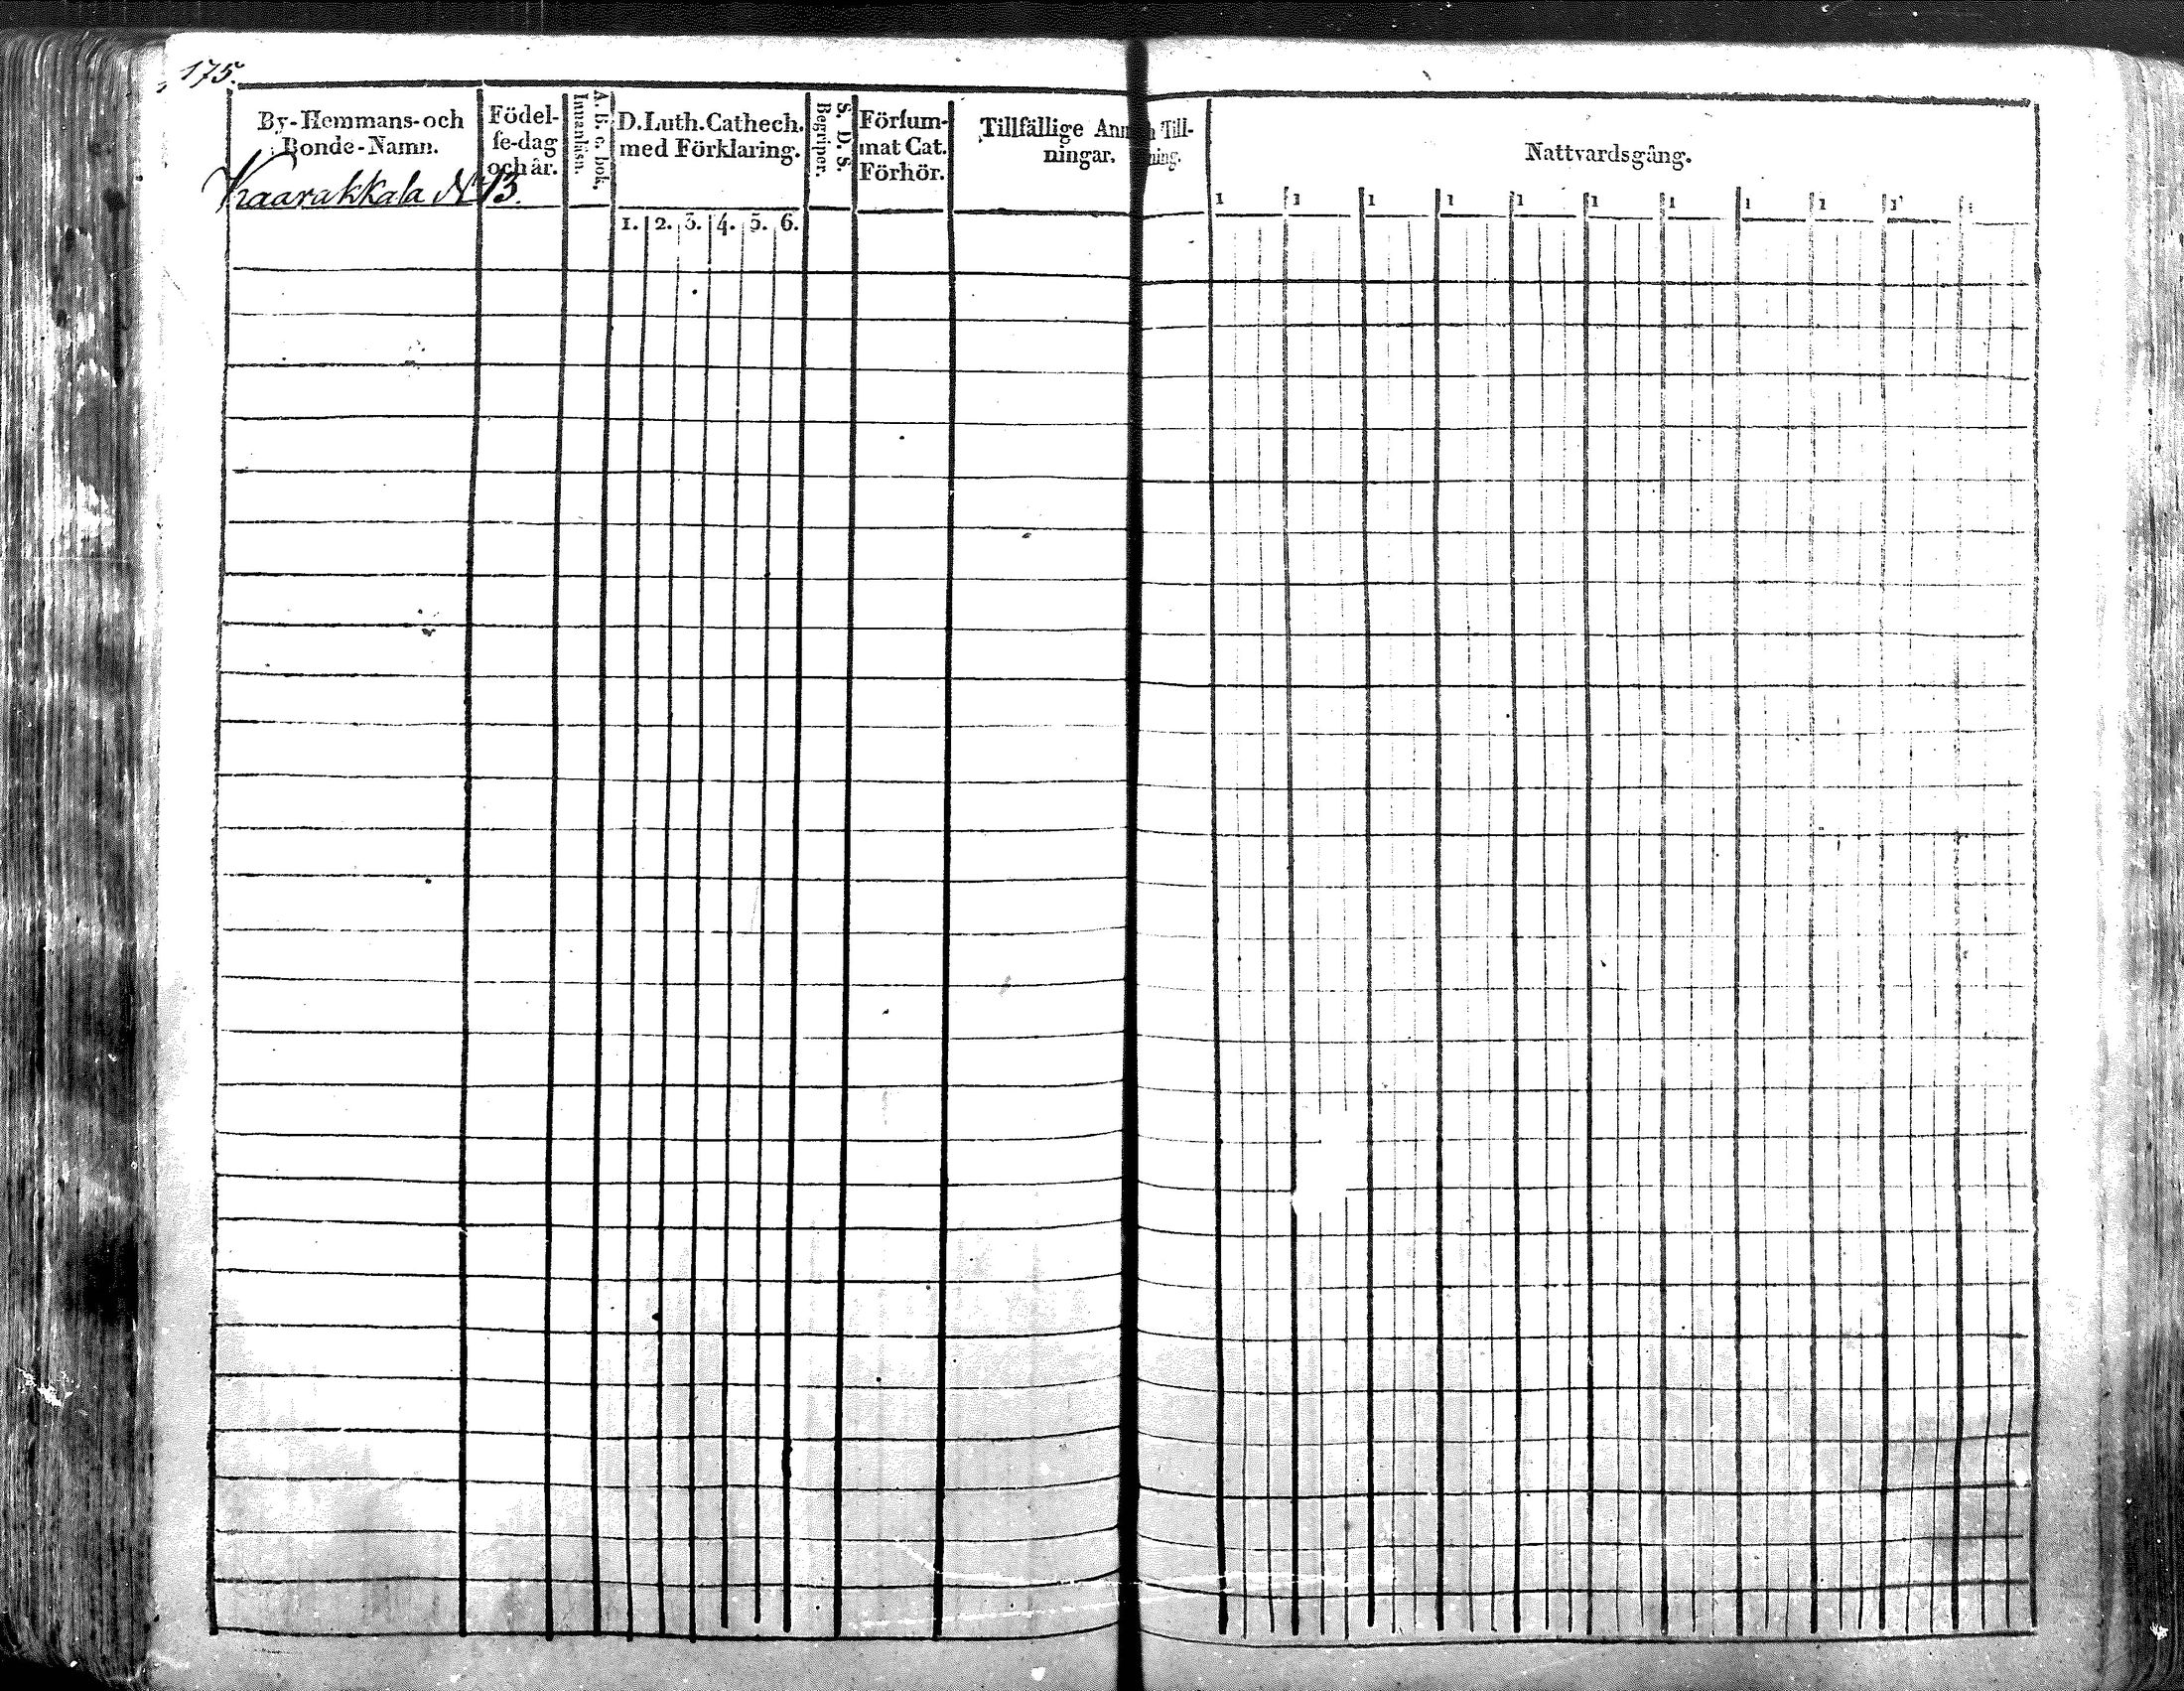 175.
By-Hemmans-och
Bonde-Namn.
Födel-
se-dag
och år.
A. b. c. bok,
Innanläsn.
D. Luth. Cathech.
med Förklaring.
S. D. S.
Begriper.
Försum-
mat Cat.
Förhör.
Tillfällige An
ningar.
Till-
ning.
Nattvardsgång.
Kaarakkala No 13.
1. 2. 3. 4. 5. 6.
1 1 1 1 1 1 1 1 1 1 1